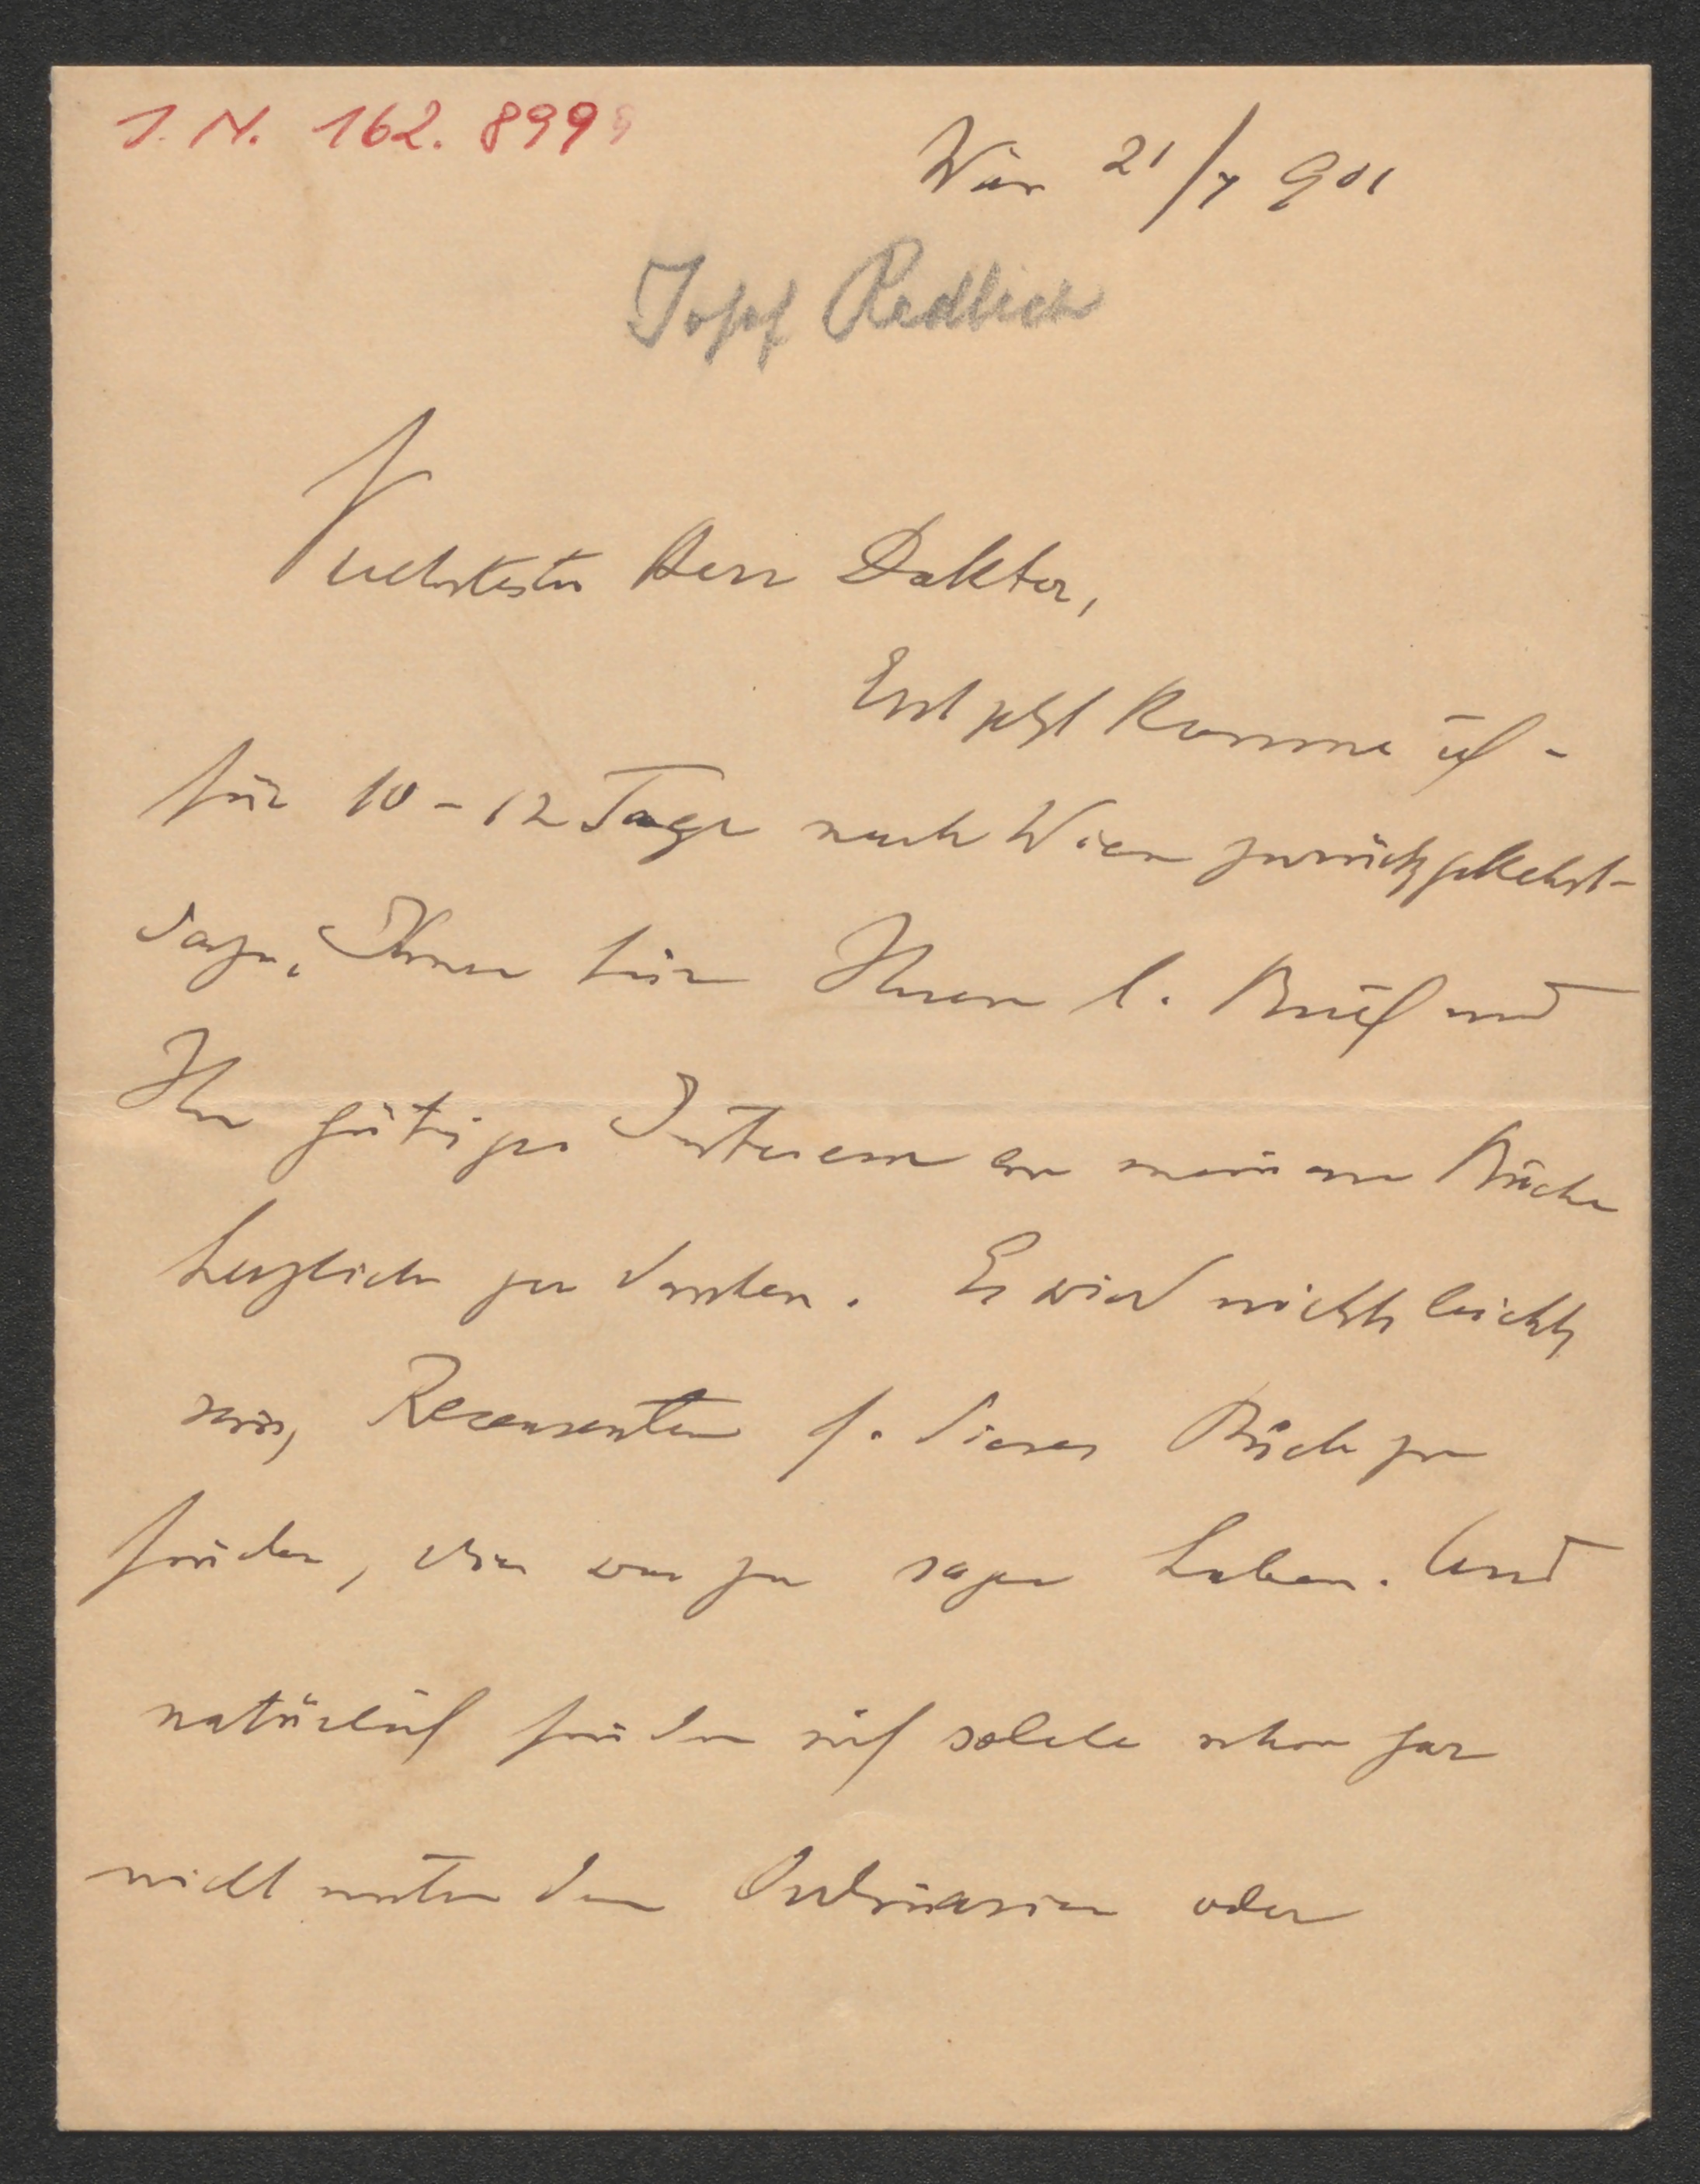 I. N. 162.899
Wien 21/7 901
Josef Redlich
Verehrtester Herr Doktor,
Erst jetzt komme ich –
für 10–12 Tage nach Wien zurückgekehrt –
dazu, Ihnen für Ihren l. Brief und
Ihr gütiges Interesse an meinem Buche
herzlich zu danken. Es wird nicht leicht
sein, Recensenten f. dieses Buch zu
finden, die was zu sagen haben. Und
natürlich finden sich solche schon gar
nicht unter den Ordinarien oder